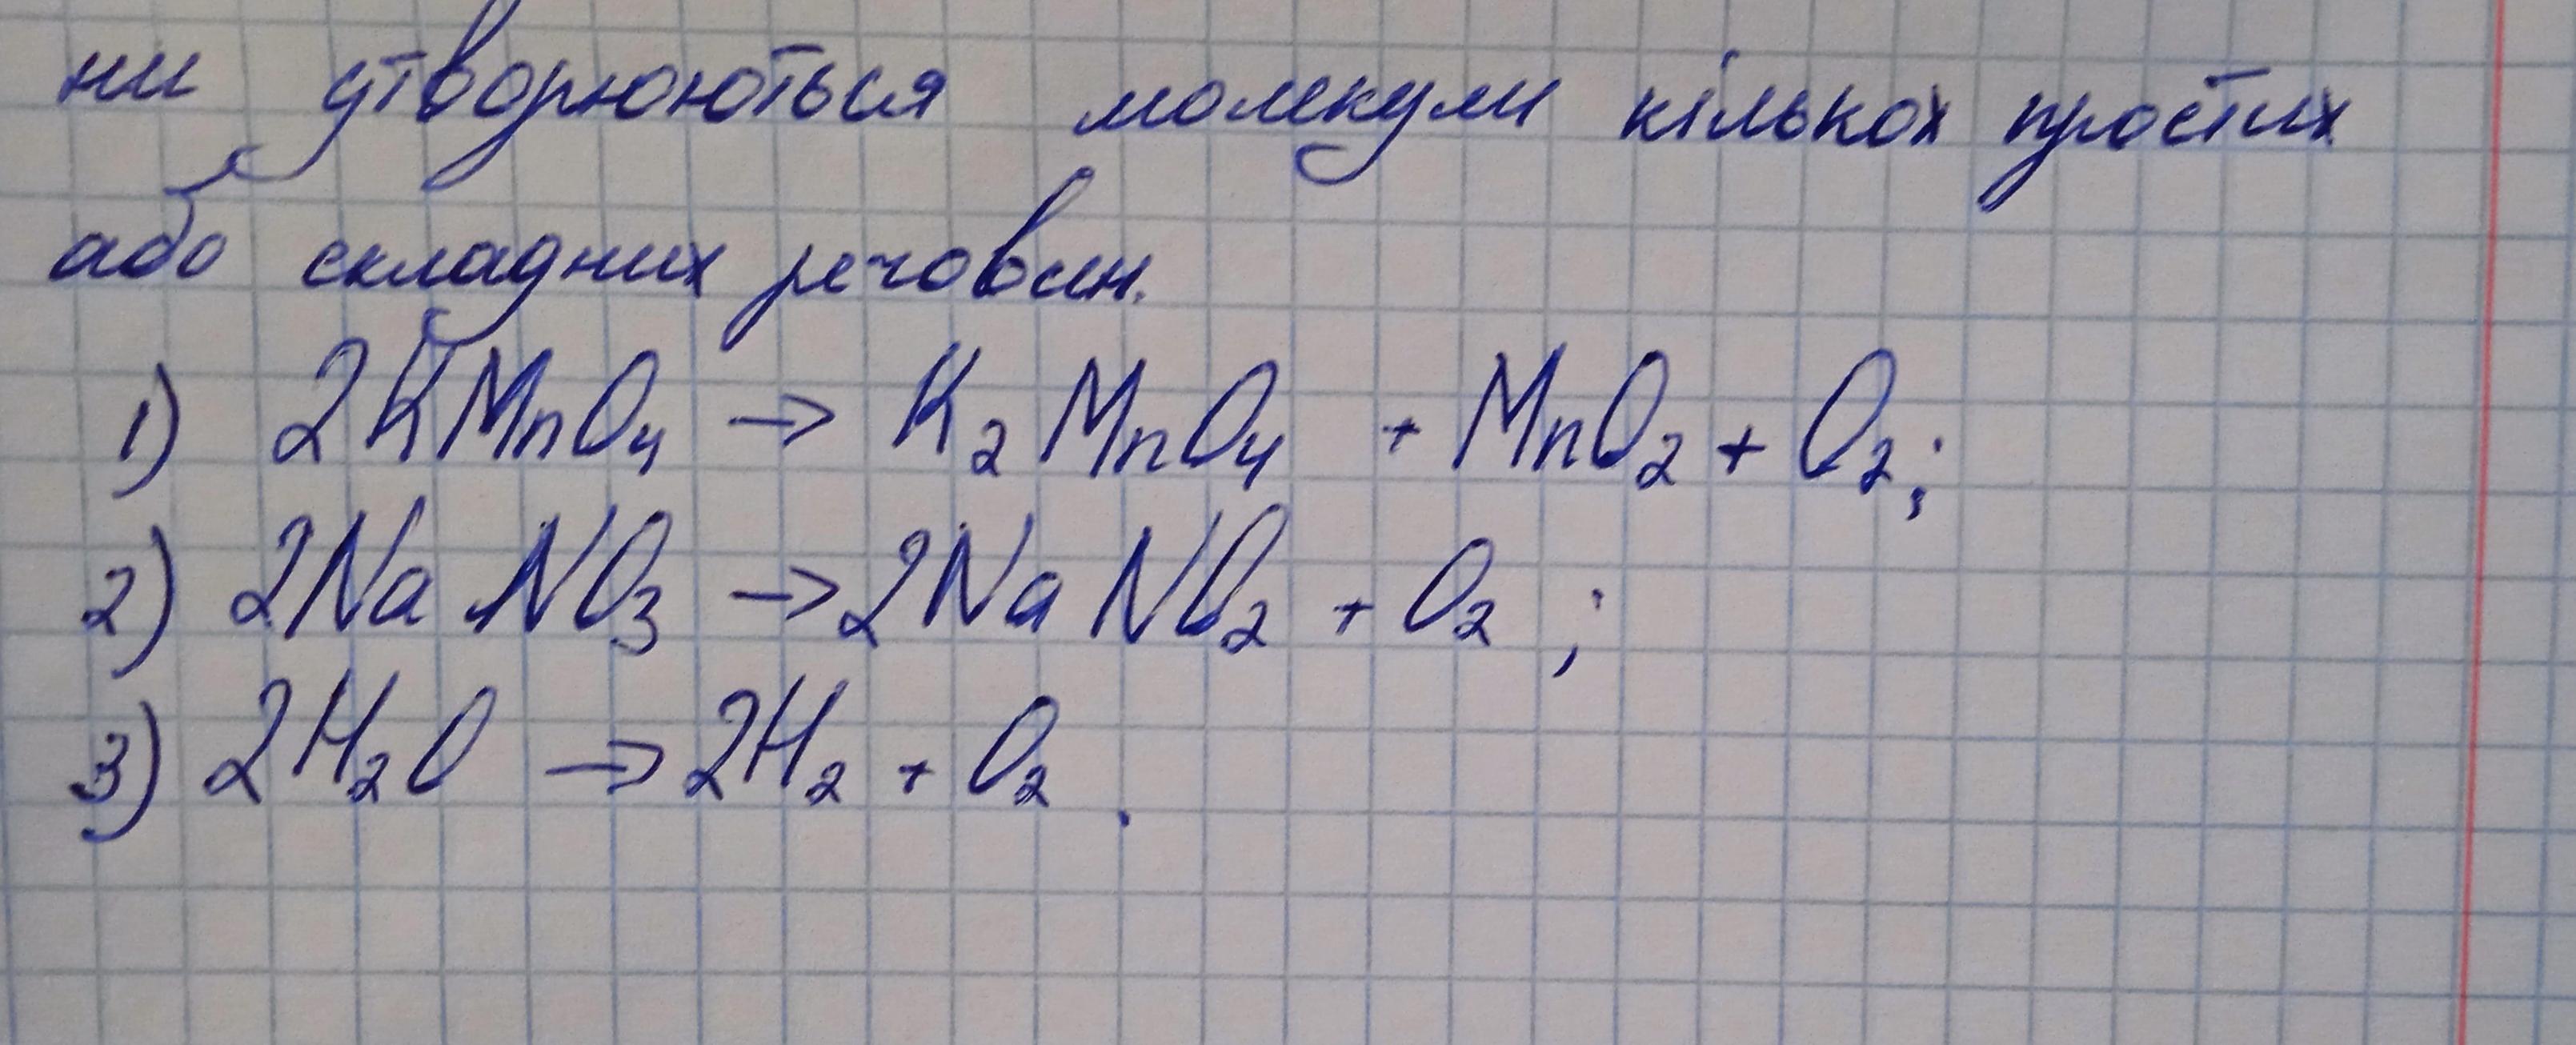 ни утворюються молекули кількох простих
або складних речовин.
1) 2KMnO₄ → K₂MnO₄ + MnO₂ + O₂;
2) 2NaNO₃ → 2NaNO₂ + O₂;
3) 2H₂O → 2H₂ + O₂.